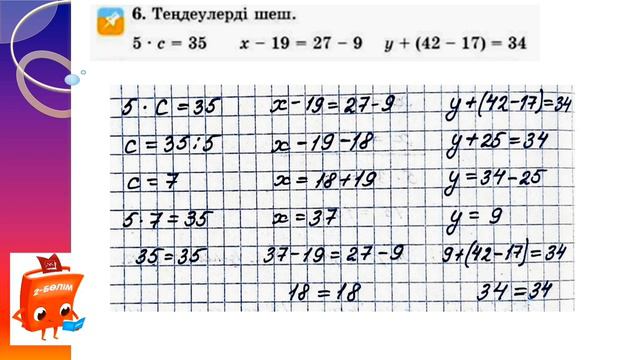 6. Теңдеулерді шеш.
5 · c = 35 x − 19 = 27 − 9 y + (42 − 17) = 34
5 · c = 35 x − 19 = 27 − 9 y + (42 − 17) = 34
c = 35 : 5 x − 19 − 18 y + 25 = 34
c = 7 x = 18 + 19 y = 34 − 25
5 · 7 = 35 x = 37 y = 9
35 = 35 37 − 19 = 27 − 9 9 + (42 − 17) = 34
18 = 18 34 = 34
2-БӨЛІМ